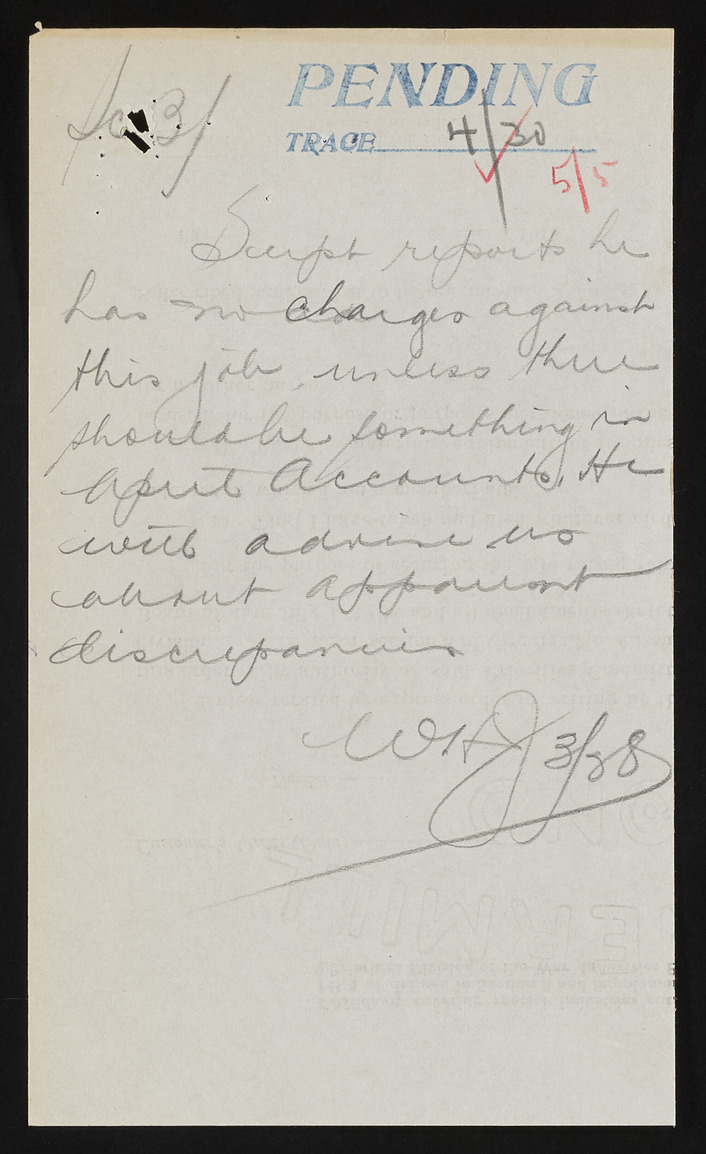 PENDING
TRACE 4/30
5/5
reports he
has no charges against
this job unless there
should be something in
Accounts. He
will advise us
about apparent
discrepancies
WHJ 3/28